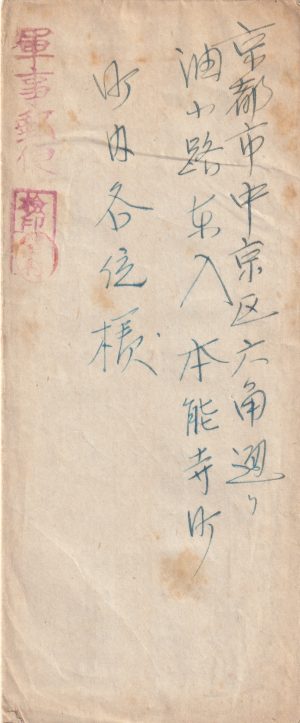 京都市中京区六角通り
油小路東入本能寺町
町内各位様
軍事郵便
検印